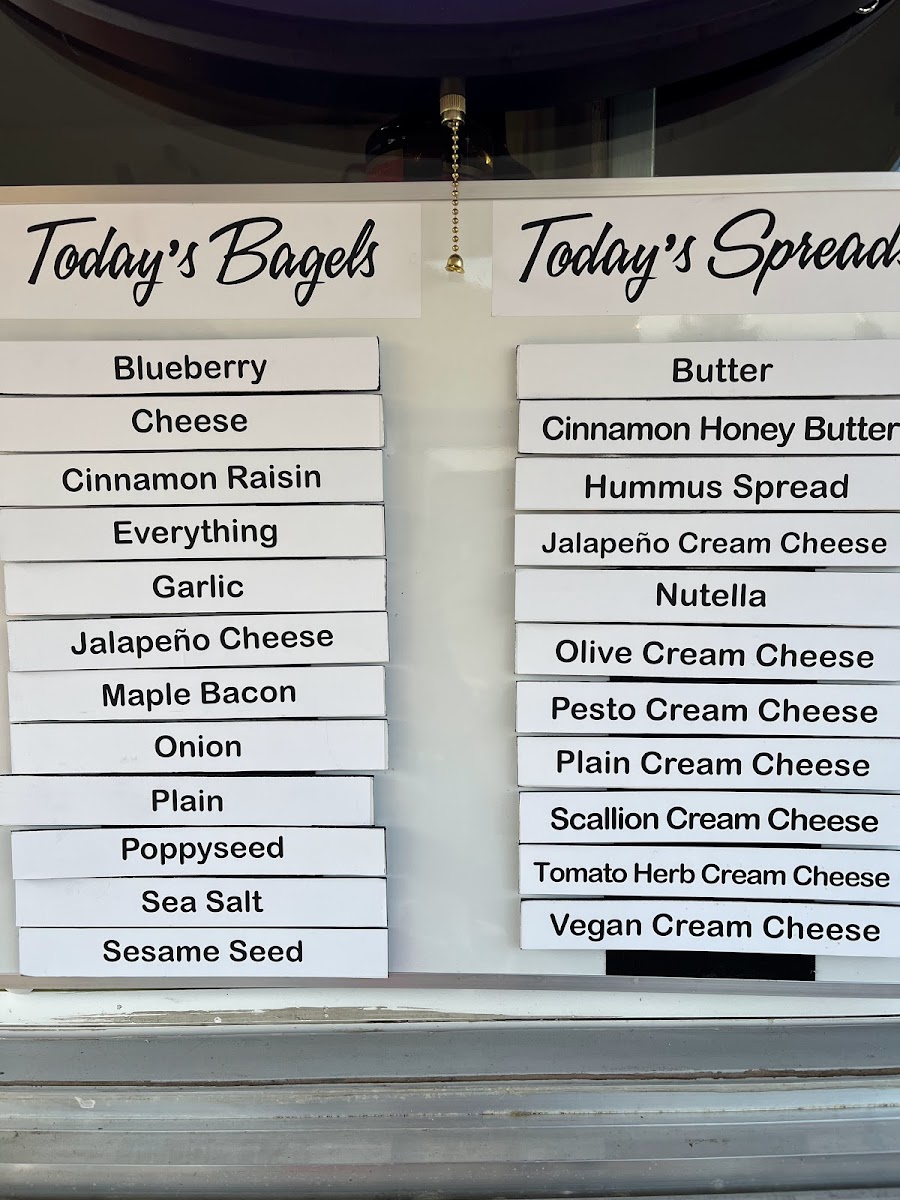 Today's Bagels
Blueberry
Cheese
Cinnamon Raisin
Everything
Garlic
Jalapeño Cheese
Maple Bacon
Onion
Plain
Poppyseed
Sea Salt
Sesame Seed
Today's Spreads
Butter
Cinnamon Honey Butter
Hummus Spread
Jalapeño Cream Cheese
Nutella
Olive Cream Cheese
Pesto Cream Cheese
Plain Cream Cheese
Scallion Cream Cheese
Tomato Herb Cream Cheese
Vegan Cream Cheese